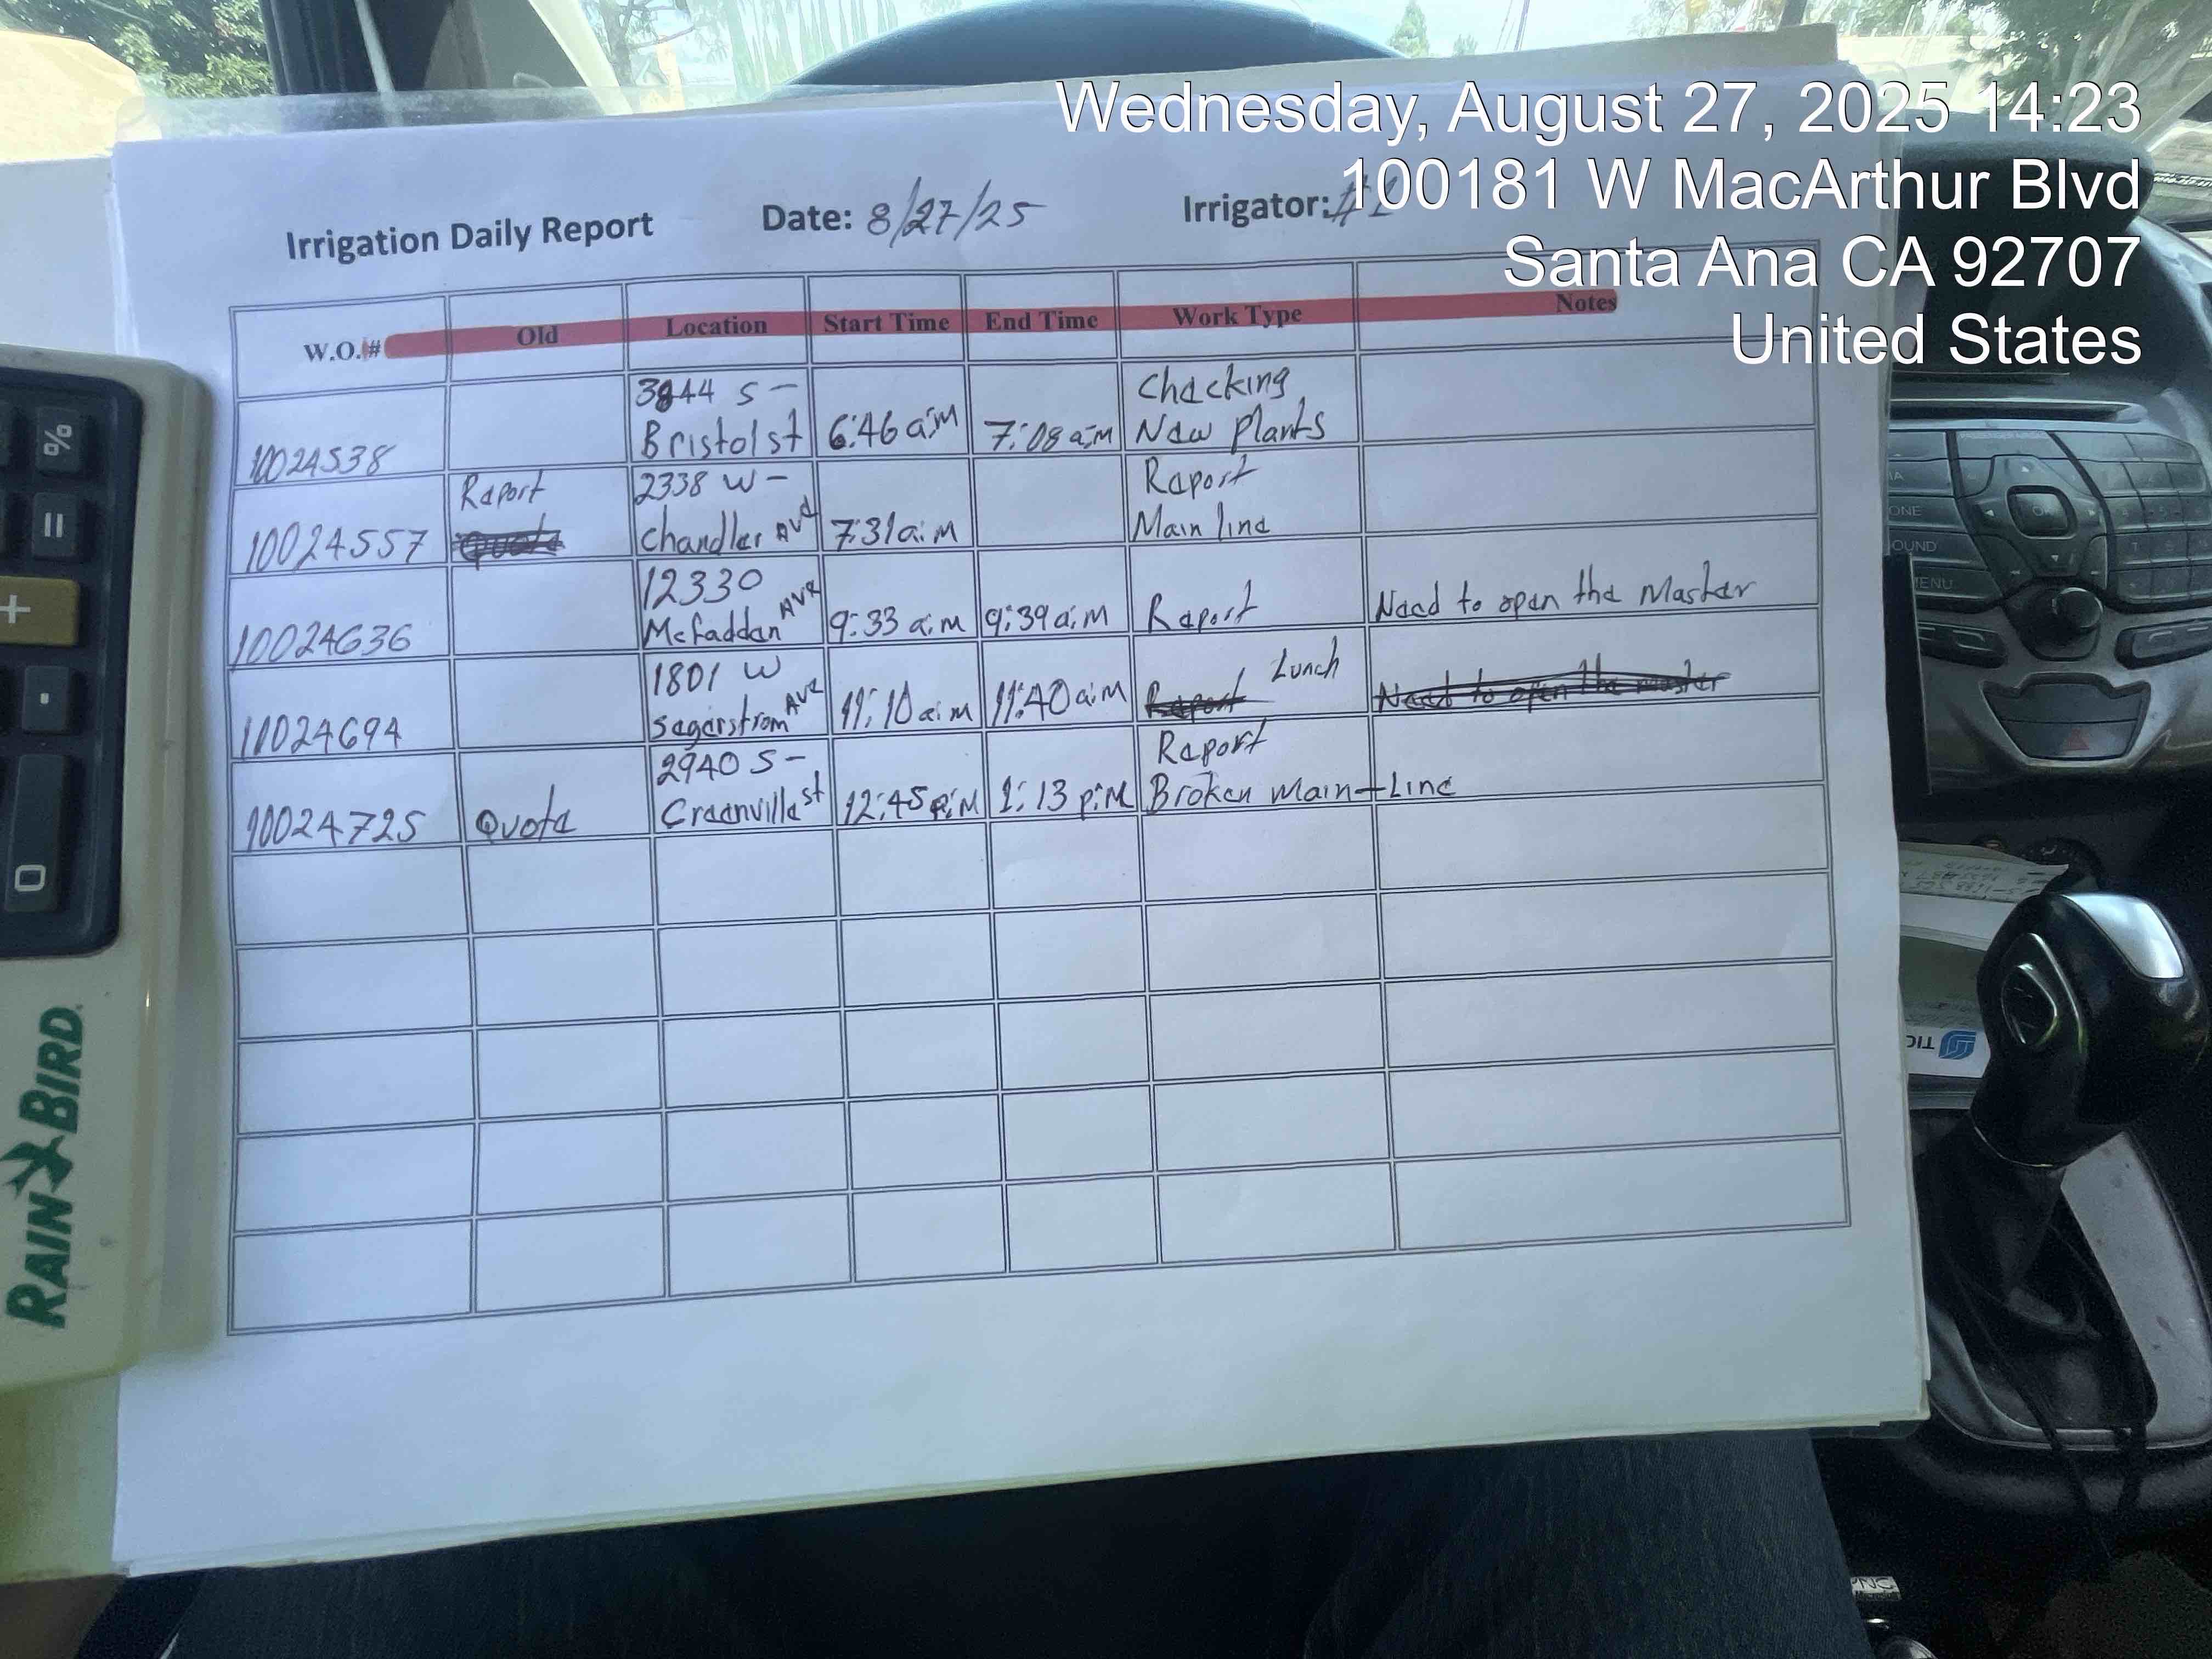 Wednesday, August 27, 2025 14:23
100181 W MacArthur Blvd
Santa Ana CA 92707
United States
Irrigation Daily Report Date: 8/27/25 Irrigator: #1
W.O.# Old Location Start Time End Time Work Type Notes
10024538 3844 S - Bristol st 6:46 a:M 7:08 a:M Checking New Plants
10024557 Report Quote 2338 W - Chandler Ave 7:31 a:M Report Main line
10024636 12330 McFadden Ave 9:33 a:M 9:39 a:M Report Need to open the Master
11024694 1801 W Segerstrom Ave 11:10 a:M 11:40 a:M Report Lunch Need to open the master
10024725 Quote 2940 S - Greenville st 12:45 P:M 1:13 P:M Report Broken Main-Line
%
=
+
.
0
RAIN BIRD
OK
MENU
TIC